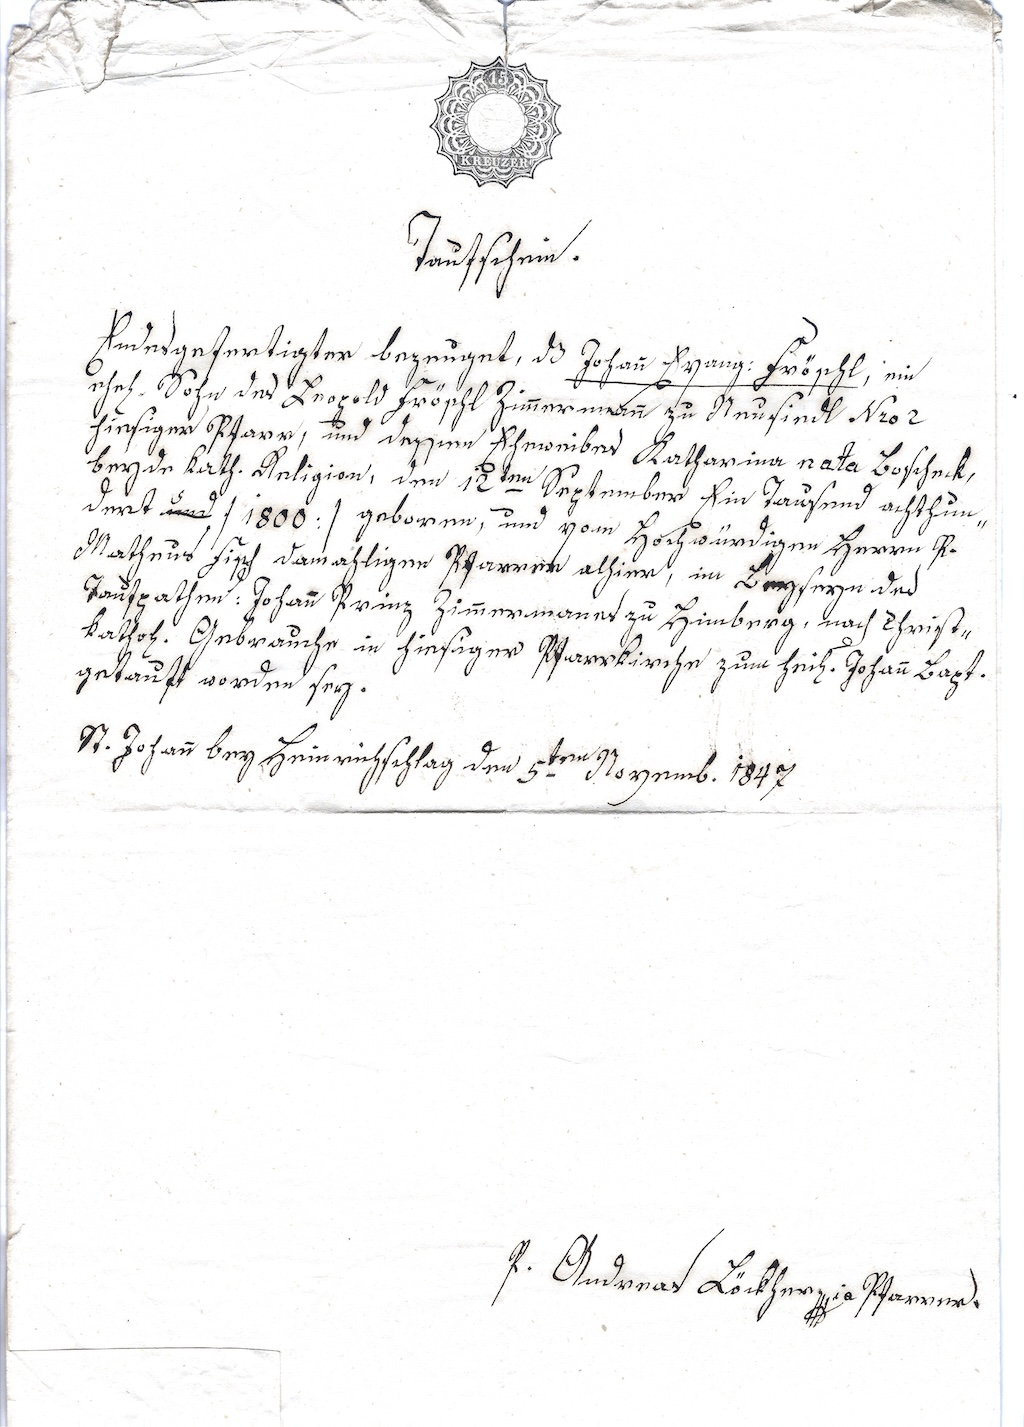 15
KREUZER
Taufschein.
Endesgefertigter bezeuget, dß Johann Evang: Fröschl, ein
ehel. Sohn des Leopold Fröschl Zimmermann zu Neusiedl Nro 2
hiesiger Pfarr, und dessen Eheweibes Katharina nata Boscheck,
beyde kath. Religion, den 12ten September Ein Tausend achthun„
dert und /1800:/ geboren, und vom Hochwürdigen Herrn P.
Matheus Fisch damahligen Pfarrer alhier, im Beyseyn des
Taufpathen: Johann Prinz Zimmermanes zu Himberg, nach Christ„
kathol. Gebrauche in hiesiger Pfarrkirche zum heil. Johann Bapt.
getauft worden sey.
St. Johann bey Heinrichschlag den 5ten Novemb. 1847
P. Andreas Pfarrer.